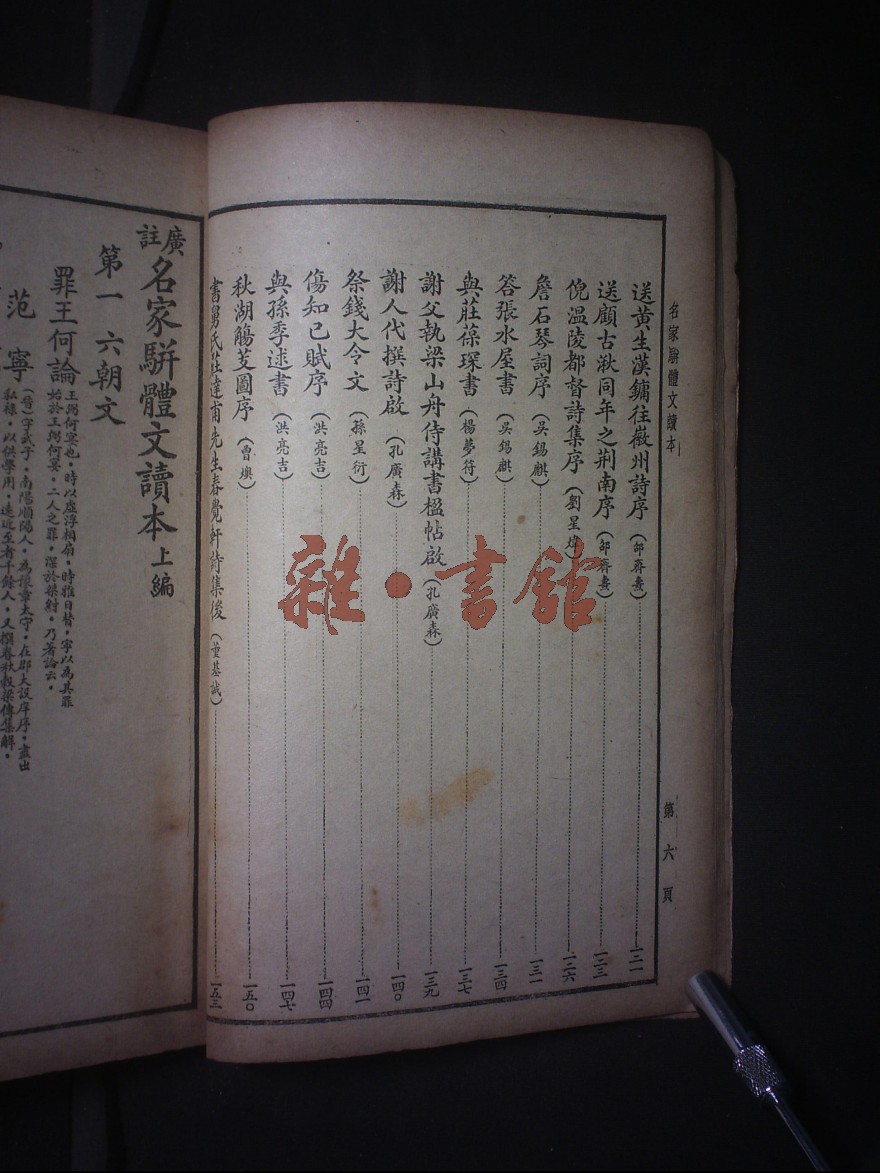 名家駢體文讀本
第六頁
送黃生漢鏞往徽州詩序(邵齊燾)一二一
送顧古湫同年之荆南序(邵齊燾)一二三
倪溫陵都督詩集序(劉星煒)一二六
詹石琴詞序(吳錫麒)一三一
答張水屋書(吳錫麒)一三四
與莊葆琛書(楊夢符)一三七
謝父執梁山舟侍講書楹帖啟(孔廣森)一三九
謝人代撰詩啟(孔廣森)一四〇
祭錢大令文(孫星衍)一四一
傷知己賦序(洪亮吉)一四四
與孫季逑書(洪亮吉)一四七
秋湖觴芰圖序(曾燠)一五〇
書舅氏莊達甫先生春覺軒詩集後(董基誠)一五三
廣註名家駢體文讀本上編
第一 六朝文
罪王何論 王弼何宴也,時以虛浮相扇,時雅日替,寧以為其罪
始於王弼何宴,二人之罪,深於桀紂,乃著論云。
范寧 (晉)字武子,南陽順陽人,為豫章太守,在郡大設庠序,盡出
私祿,以供學用,遠近至者千餘人,又撰春秋穀梁傳集解,
雜·書館